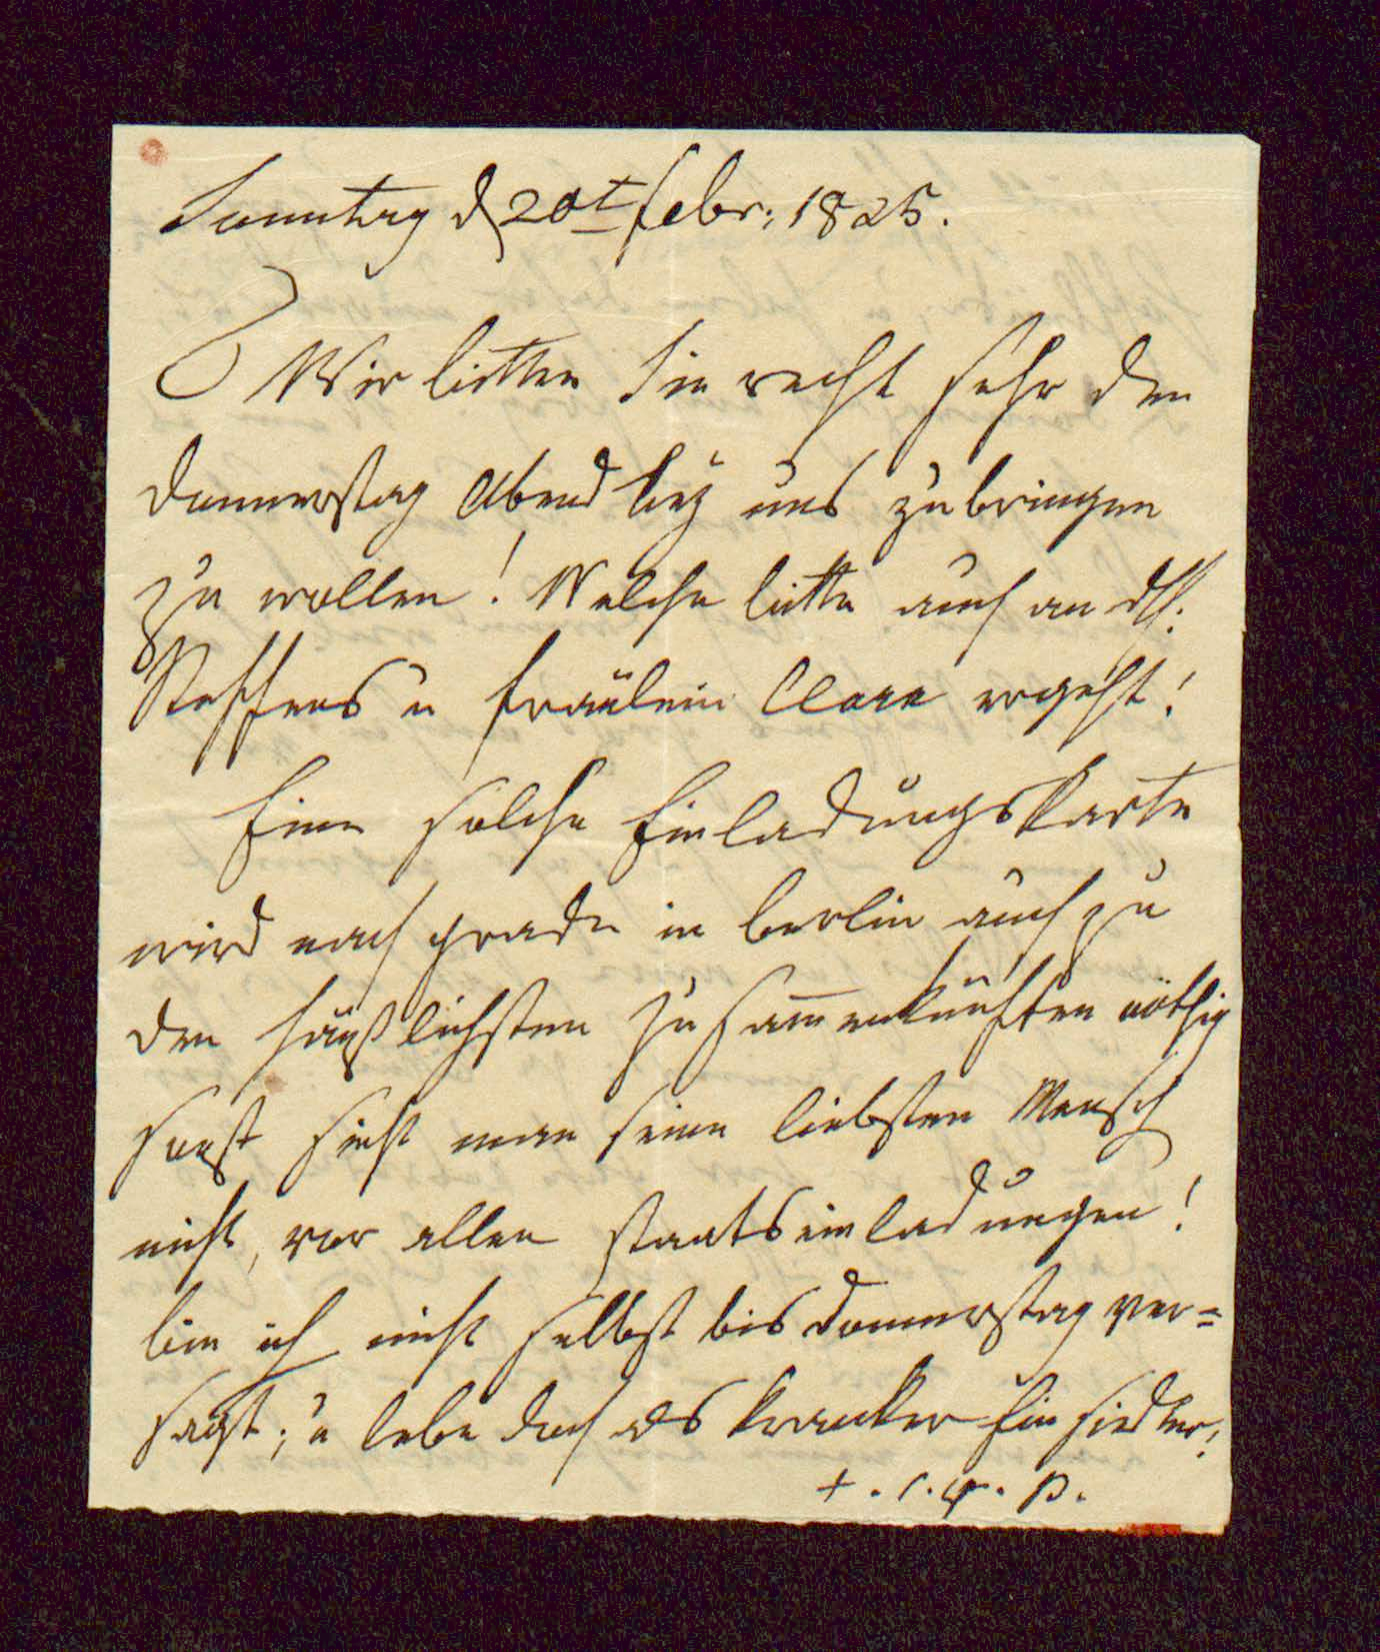 Sonntag d 20t Febr: 1825.
Wir bitten Sie recht sehr den
Donnerstag Abend bey uns zubringen
zu wollen! Welche bitte auch an
Steffens u Fräulein Clare ergeht!
Eine solche Einladungskarte
wird nach grade in Berlin auch zu
den häußlichsten Zusam̄enkünften nöthig
sonst sieht man seine liebsten Mensch
nicht, vor allen Staatseinladungen!
bin ich nicht selbst bis Donnerstag ver=
sagt; u lebe doch als kranker Einsiedler!